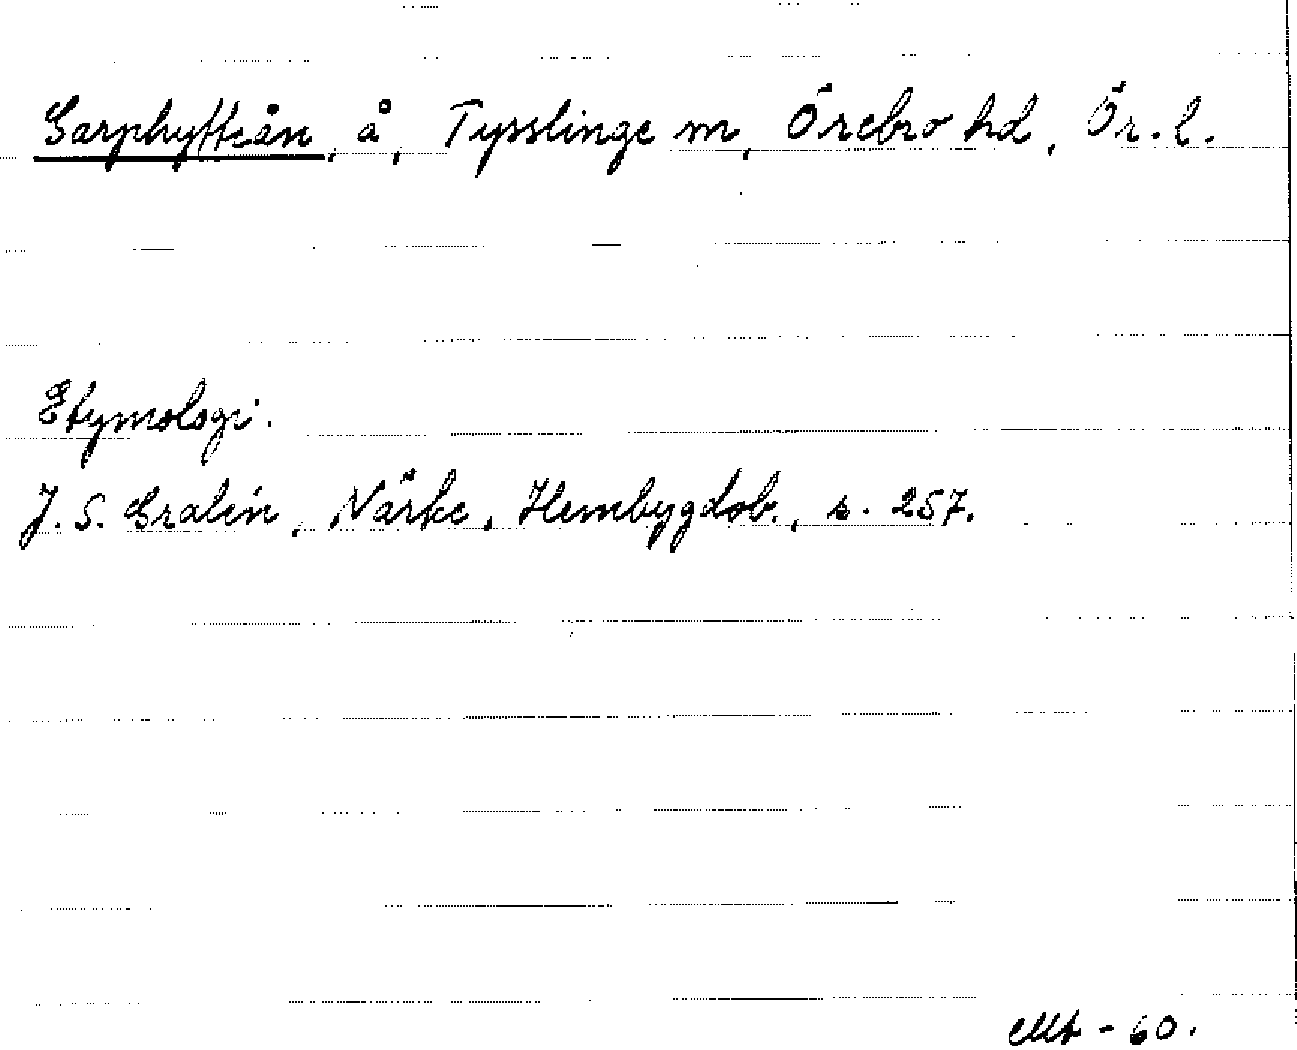 Garphytteån, å, Tysslinge m, Örebro hd, Ör. l.
Etymologi.
J. S. Gralin, Närke, Hembygdsb., s. 257.
-60.